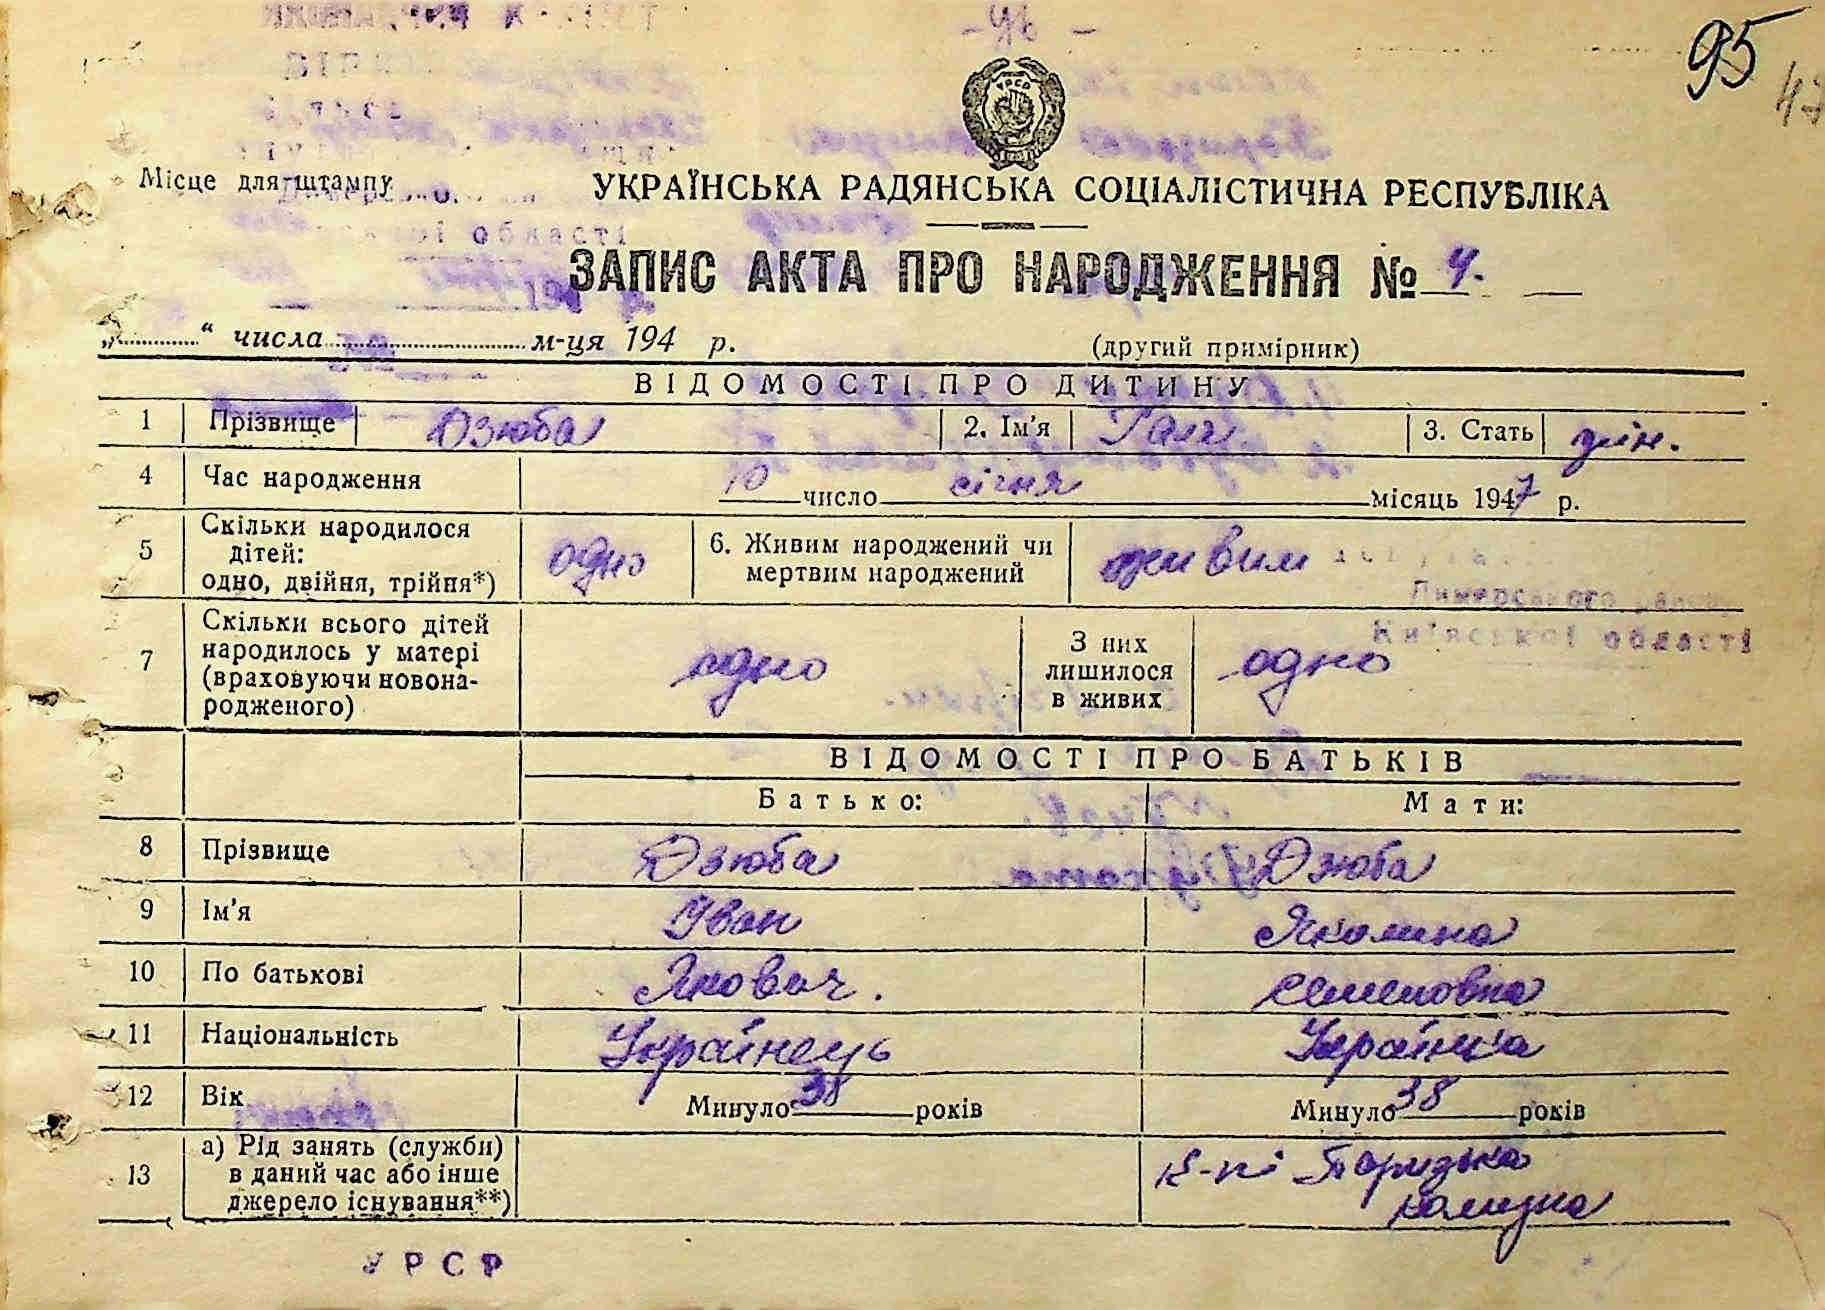 95
47
УРСР
Місце для штампу
УКРАЇНСЬКА РАДЯНСЬКА СОЦІАЛІСТИЧНА РЕСПУБЛІКА
області
ЗАПИС АКТА ПРО НАРОДЖЕННЯ № 4.
„ “ числа м-ця 194 р. (другий примірник)
ВІДОМОСТІ ПРО ДИТИНУ
1 Прізвище Дзюба 2. Ім'я Галя 3. Стать жін.
4 Час народження 10 число січня місяць 1947 р.
5 Скільки народилося дітей: одно, двійня, трійня*) одно 6. Живим народжений чи мертвим народжений живим
Димерського району
Київської області
7 Скільки всього дітей народилось у матері (враховуючи новонародженого) одно З них лишилося в живих одно
ВІДОМОСТІ ПРО БАТЬКІВ
Батько: Мати:
8 Прізвище Дзюба Дзюба
9 Ім'я Іван Якилина
10 По батькові Якович. Семеновна
11 Національність Українець Українка
12 Вік Минуло 38 років Минуло 38 років
13 а) Рід занять (служби) в даний час або інше джерело існування**) к-пі Паризька комуна
УРСР